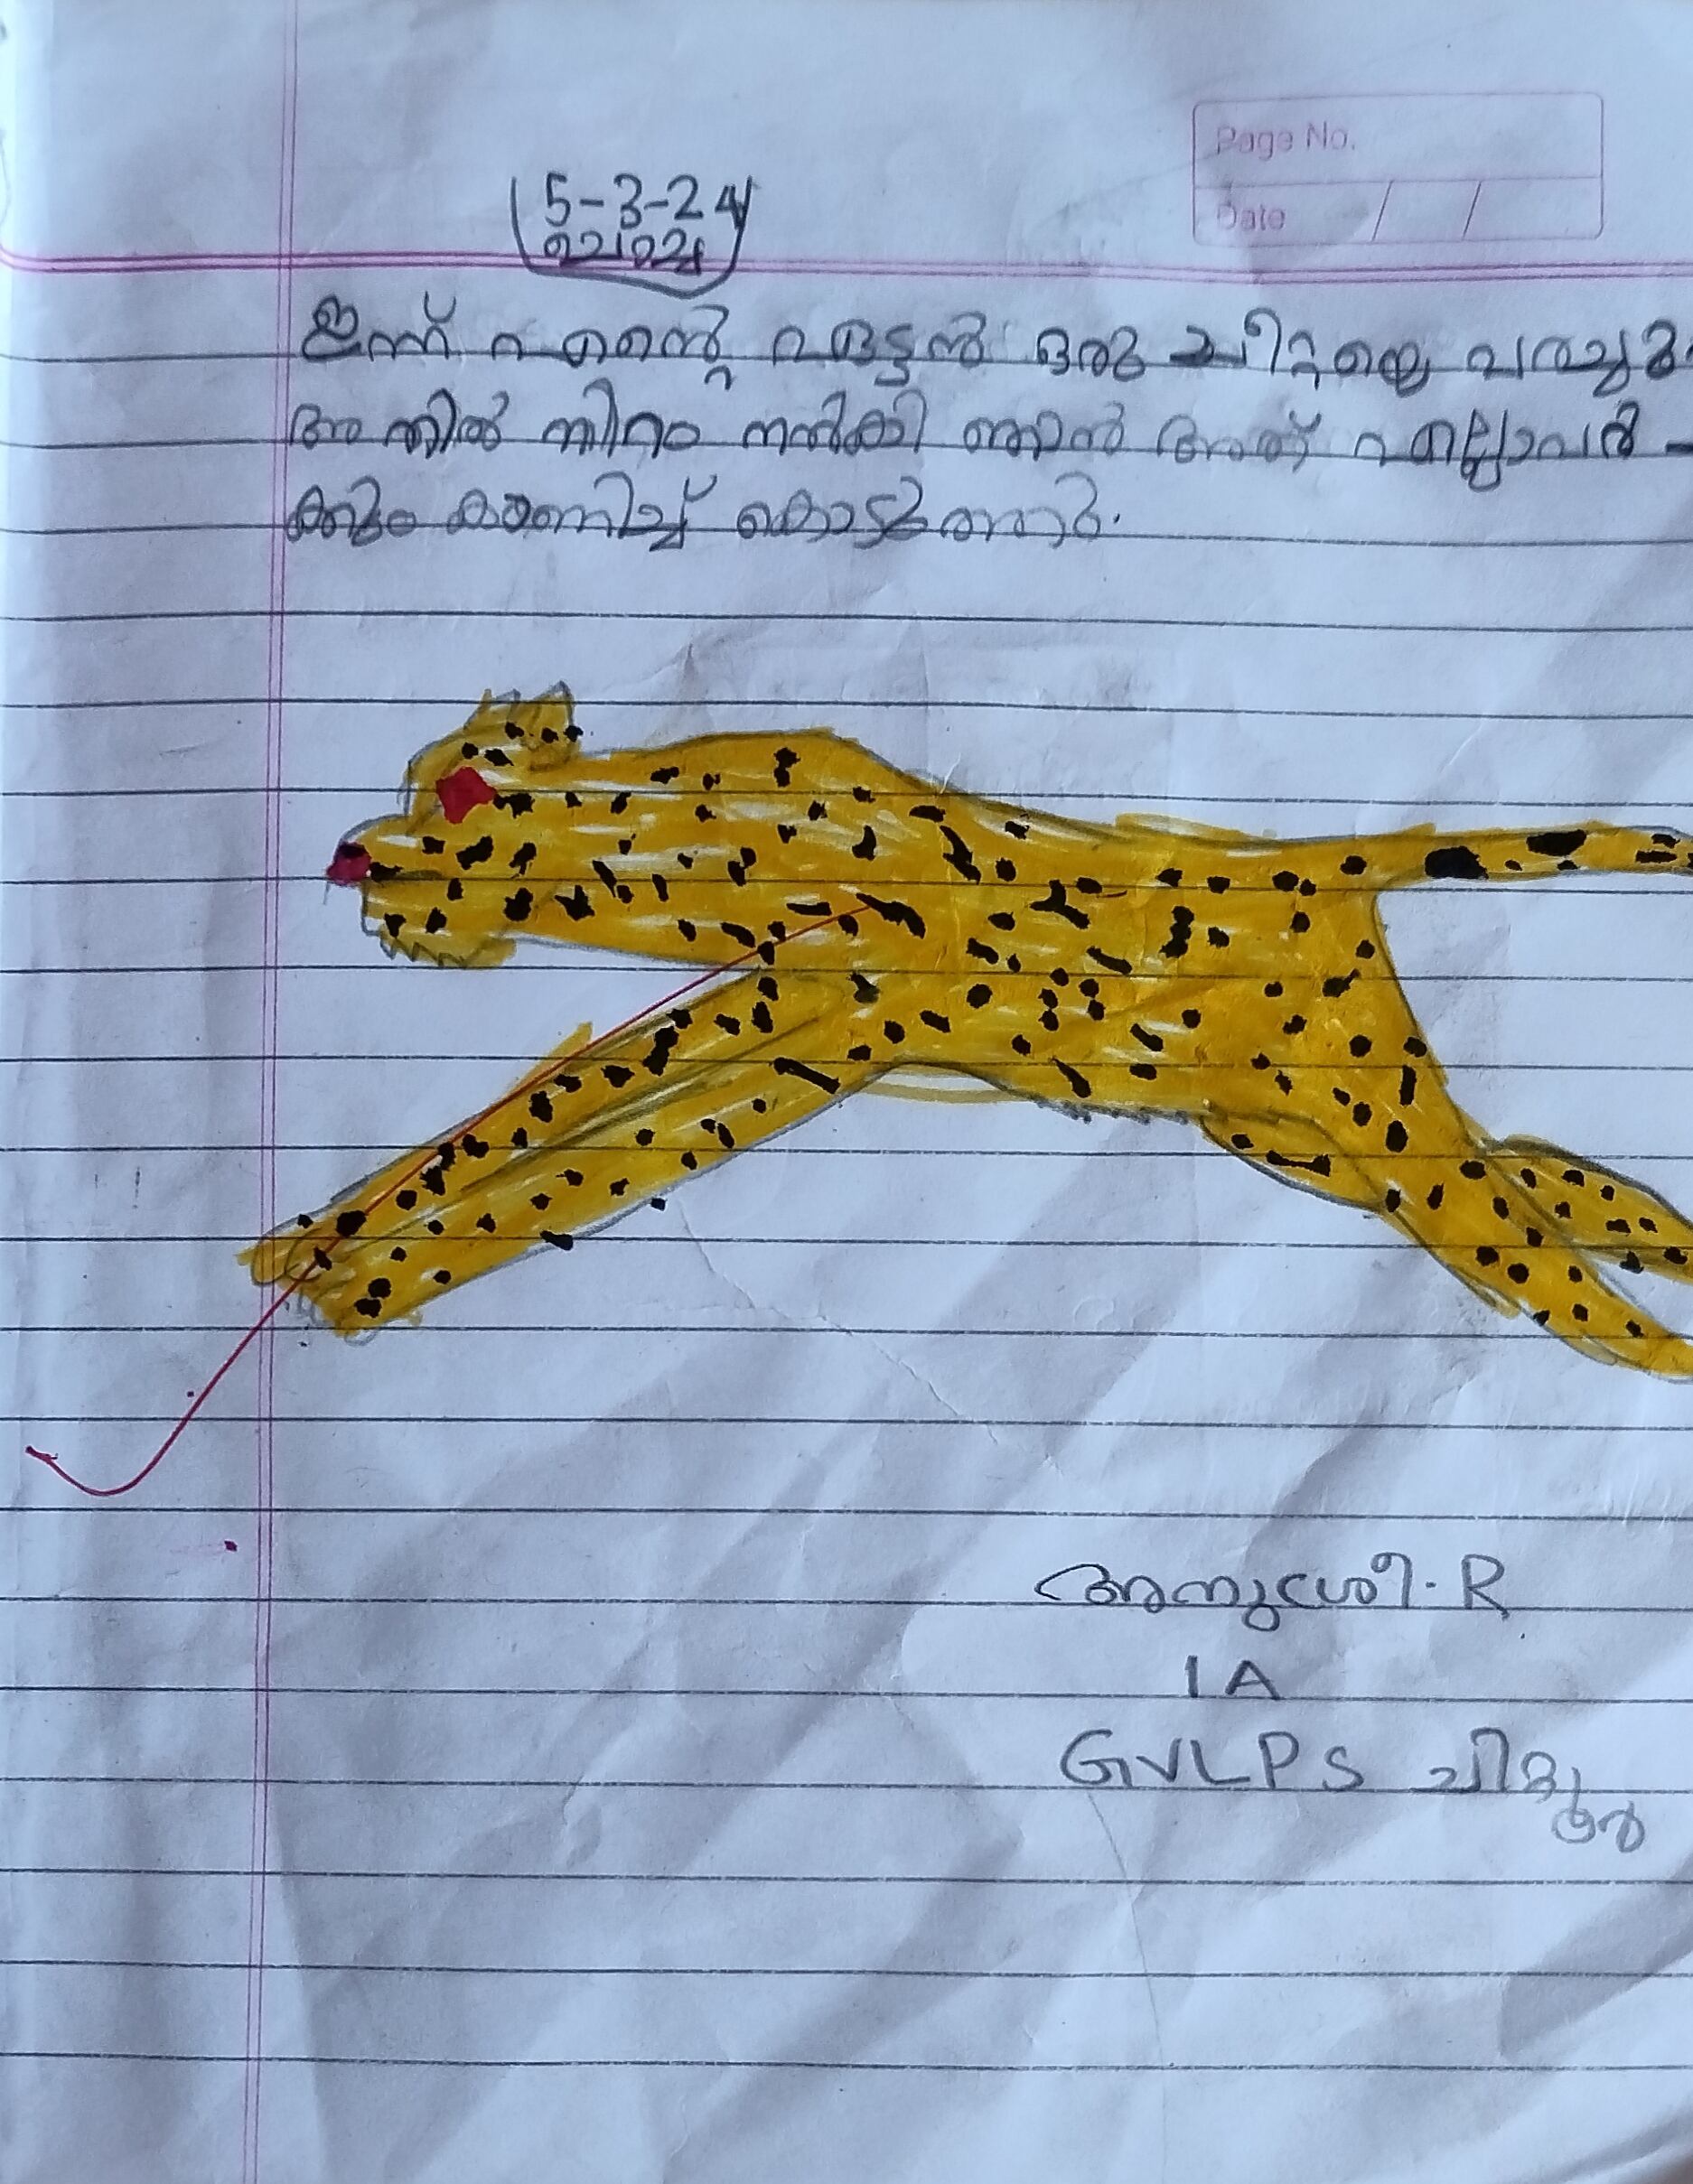 Page No.
Date / /
5-3-24
ചൊവ്വ
ഇന്ന് എന്റെ ഏട്ടൻ ഒരു ചീറ്റയെ വരച്ചു
അതിൽ നിറം നൽകി ഞാൻ അത് എല്ലാവർ-
ക്കും കാണിച്ച് കൊടുത്തു.
അനുശ്രീ. R
1A
GVLPS ചിറ്റൂർ